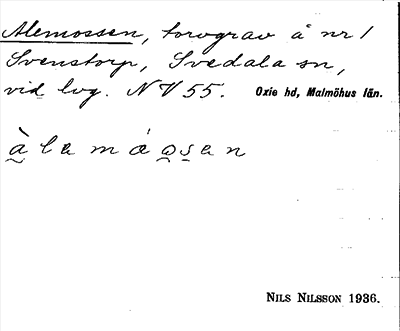 Alemossen, torvgrav å nr 1
Svenstorp, Svedala sn,
vid lvg. N V 55. Oxie hd, Malmöhus län.
NILS NILSSON 1936.